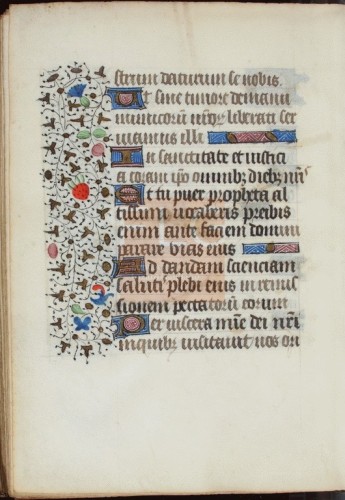 strum daturum se nobis.
Ut sine timore de manu
inimicorū nrōr liberati ser
uiamus illi
In sanctitate et iustici
a coram ipō omnibꝫ diebꝫ nrīs
Et tu puer propheta al
tissimi uocaberis preibis
enim ante faciem domini
parare uias eius
Ad dandam scienciam
salutis plebi eius in remis
sionem peccatorū eorum
Per uiscera mīe dei nrī
in quibꝫ uisitauit nos ori